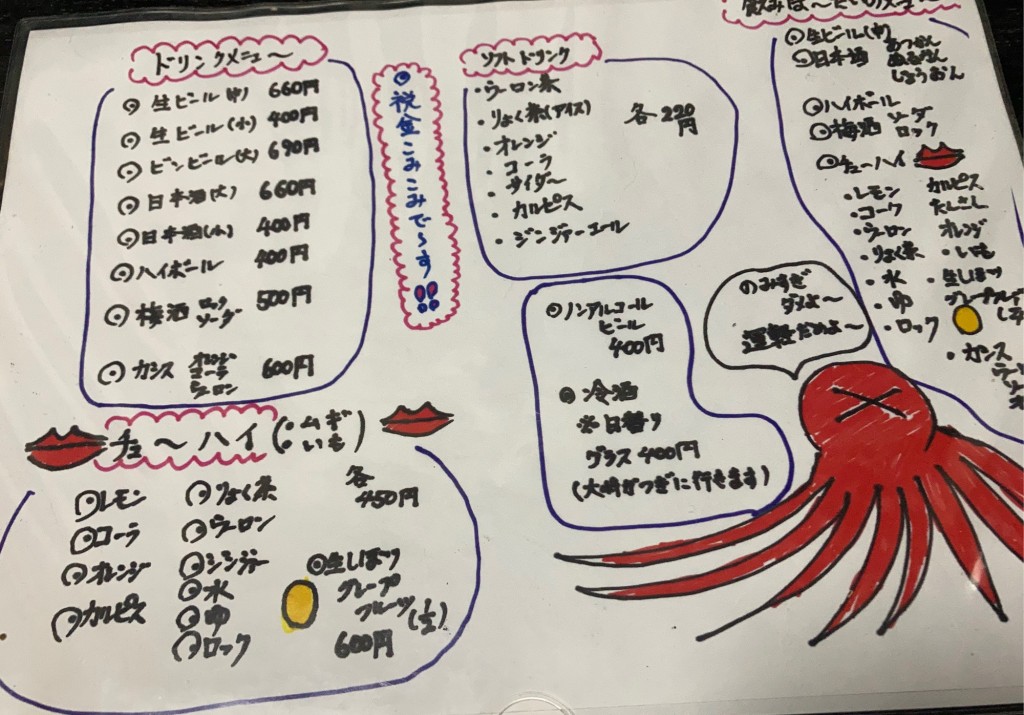 ドリンクメニュ〜
生ビール(中) 660円
生ビール(小) 400円
ビンビール(大) 690円
日本酒(大) 660円
日本酒(小) 400円
ハイボール 400円
梅酒 ロック ソーダ 500円
カシス オレンジ コーラ ウーロン 600円
税金こみこみで〜す!!
ソフトドリンク
・ウーロン茶
・りょく茶(アイス)
・オレンジ
・コーラ
・サイダー
・カルピス
・ジンジャーエール
各220円
ノンアルコール
ビール
400円
冷酒
※日替り
グラス 400円
(大崎がつぎに行きます)
チュ〜ハイ(・ムギ ・いも)
各
450円
レモン
コーラ
オレンジ
カルピス
りょく茶
ウーロン
ジンジャー
水
ゆ
ロック
生しぼり
グレープ
フルーツ(1/2)
600円
生ビール(中)
日本酒 あつかん
ぬるかん
じょうおん
ハイボール
梅酒 ソーダ
ロック
チューハイ
・レモン
・コーク
・ウーロン
・りょく茶
・水
・ゆ
・ロック
カルピス
たんさん
オレンジ
・いも
・生しぼり
・カシス
のみすぎ
ダメよ〜
運転だめよ〜